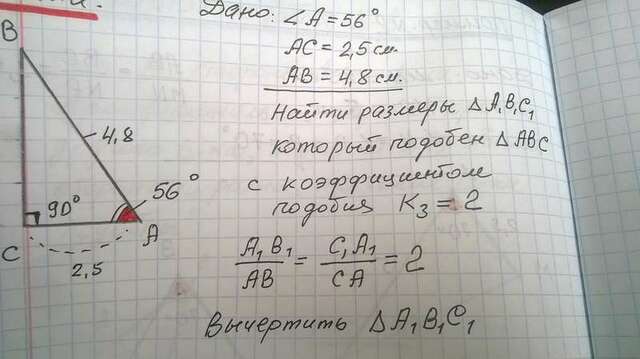 Дано: ∠A = 56°
AC = 2,5 см.
AB = 4,8 см.
Найти размеры △A₁B₁C₁
который подобен △ABC
с коэффициентом
подобия K₃ = 2
A₁B₁/AB = C₁A₁/CA = 2
Вычертить △A₁B₁C₁
B
4,8
56°
90°
C
A
2,5